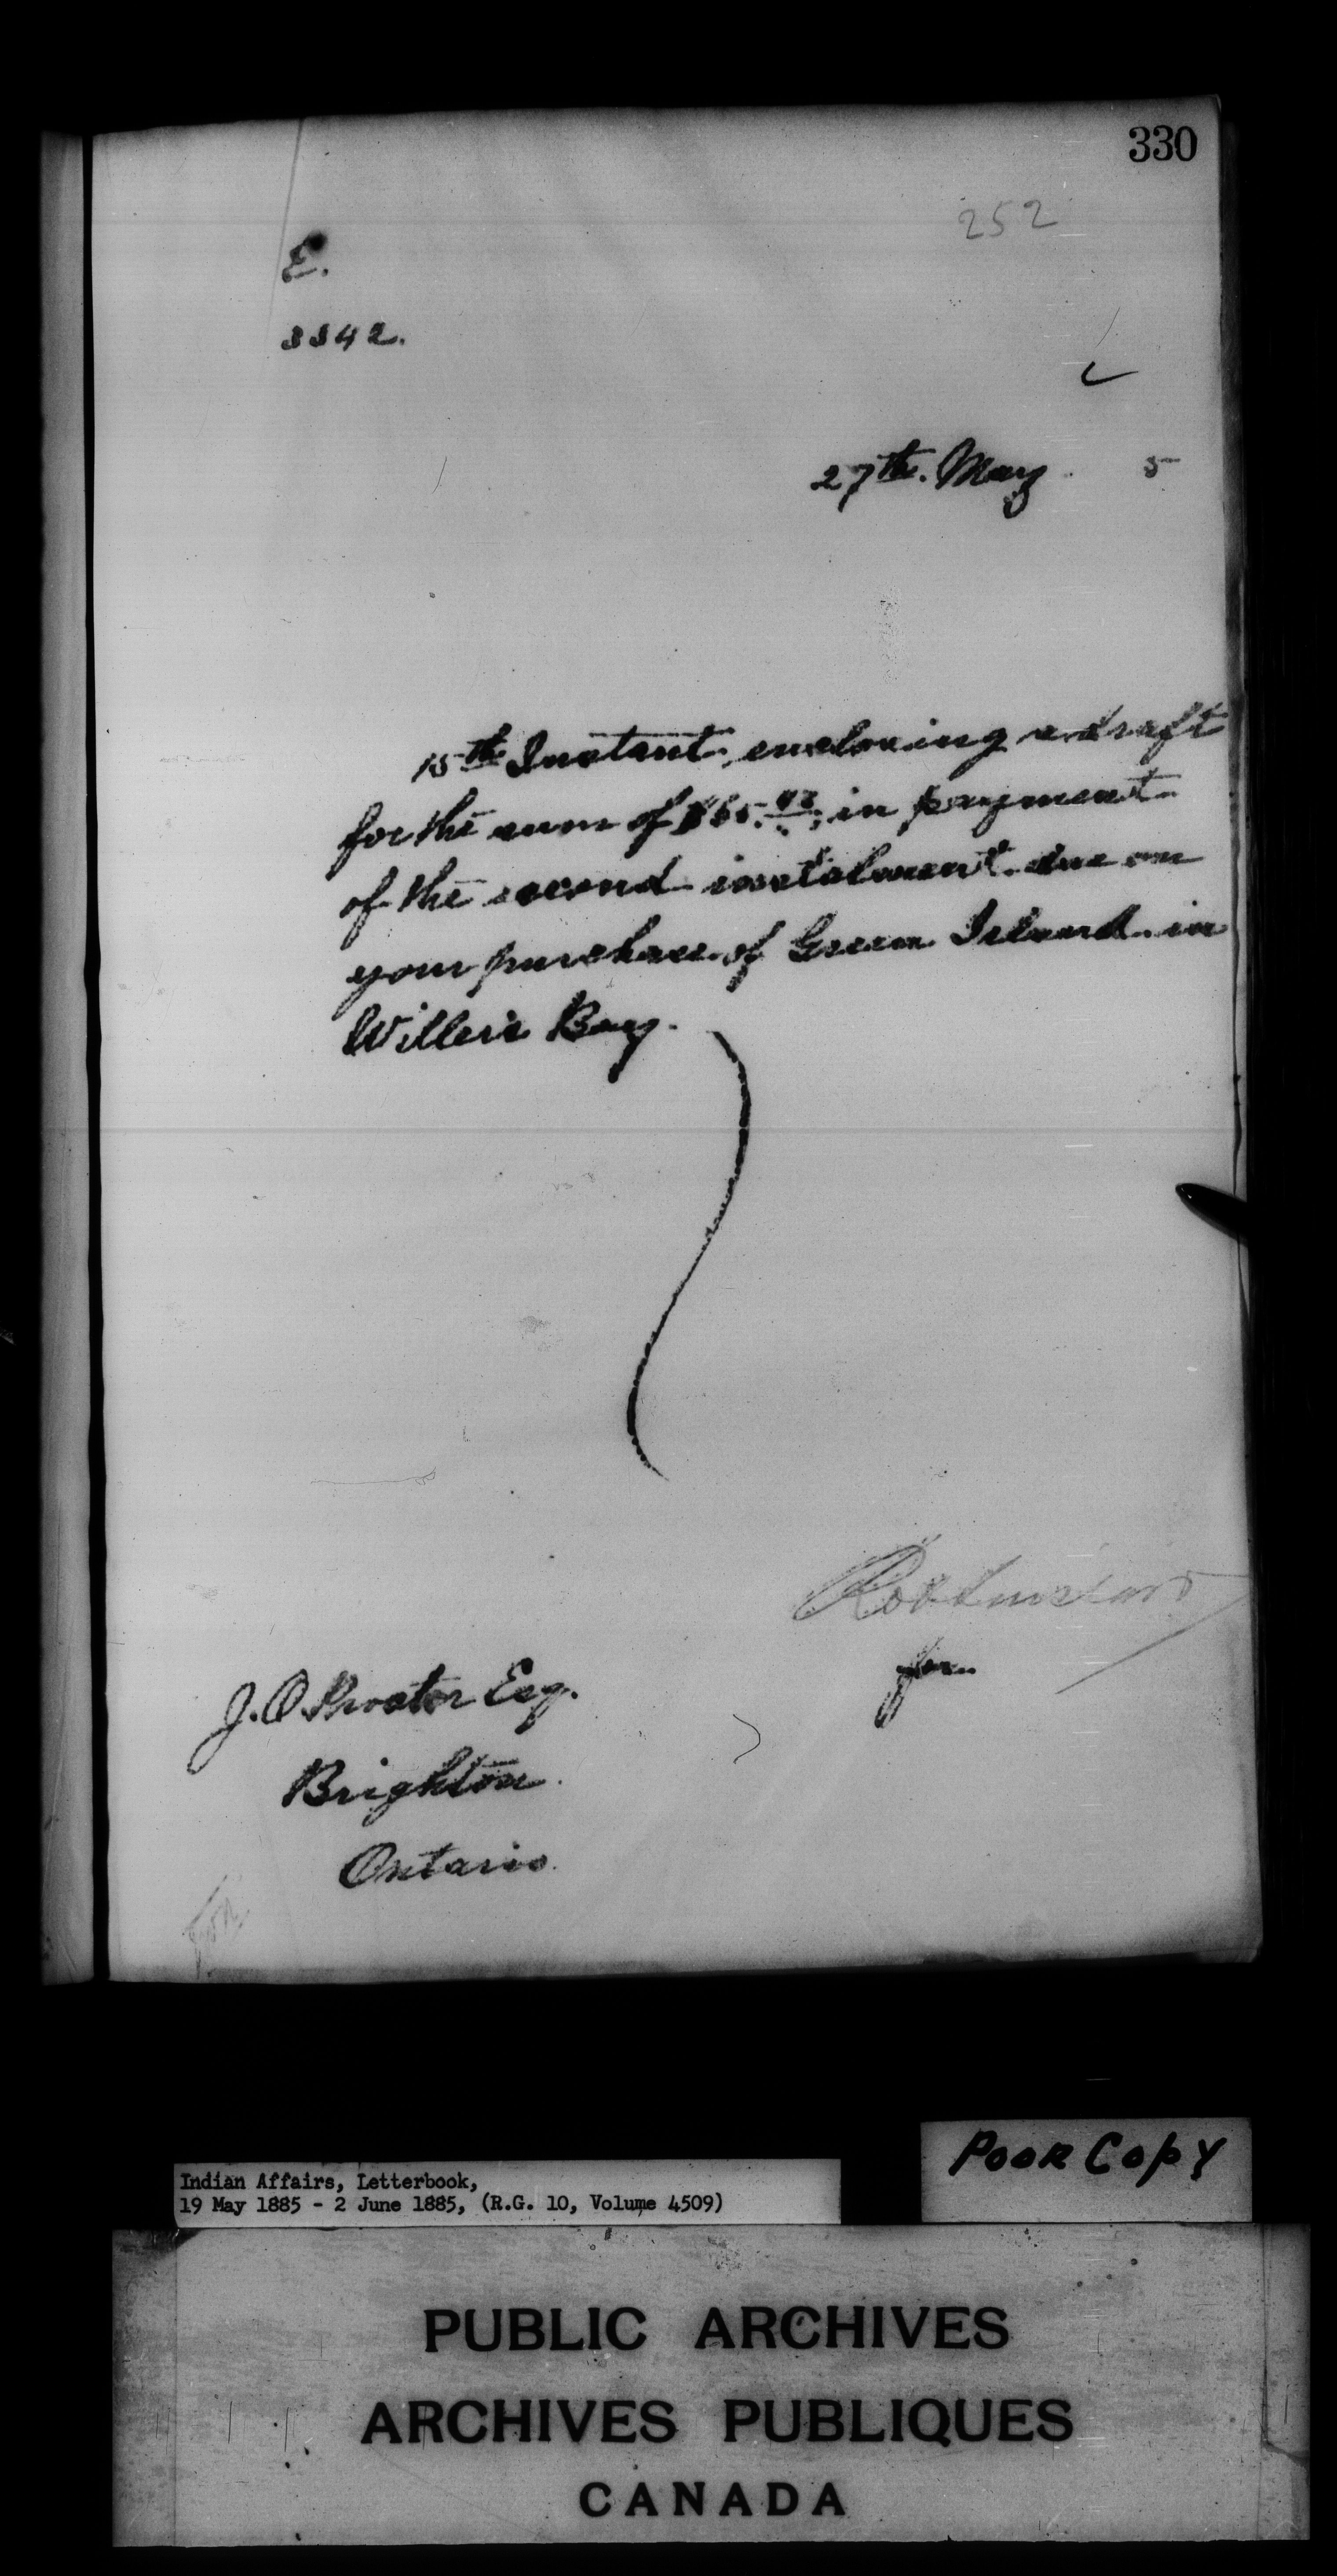 330
252
E.
3342.
27th. May 5
15th Instant, enclosing a draft
for the sum of in payment
of the second instalment due on
your purchase of Green Island in
Weller's Bay.
for
J. O. Proctor Esq.
Brighton
Ontario.
Poor Copy
Indian Affairs, Letterbook,
19 May 1885 - 2 June 1885, (R.G. 10, Volume 4509)
PUBLIC ARCHIVES
ARCHIVES PUBLIQUES
CANADA